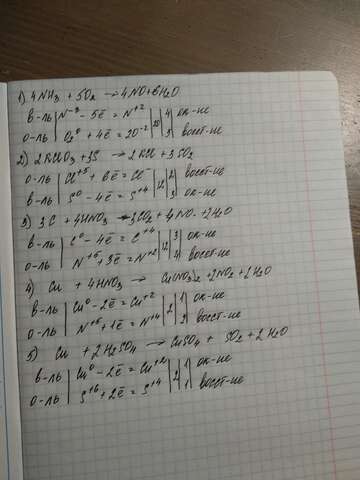 1) 4NH₃ + 5O₂ → 4NO + 6H₂O
в-ль | N⁻³ - 5ē = N⁺² | 20 | 4 | ок-не
о-ль | O₂⁰ + 4ē = 2O⁻² | 5 | восст-не
2) 2KClO₃ + 3S → 2KCl + 3SO₂
о-ль | Cl⁺⁵ + 6ē = Cl⁻ | 12 | 2 | восст-не
в-ль | S⁰ - 4ē = S⁺⁴ | 3 | ок-не
3) 3C + 4HNO₃ → 3CO₂ + 4NO + 2H₂O
в-ль | C⁰ - 4ē = C⁺⁴ | 12 | 3 | ок-не
о-ль | N⁺⁵ + 3ē = N⁺² | 4 | восст-не
4) Cu + 4HNO₃ → Cu(NO₃)₂ + 2NO₂ + 2H₂O
в-ль | Cu⁰ - 2ē = Cu⁺² | 2 | 1 | ок-не
о-ль | N⁺⁵ + 1ē = N⁺⁴ | 2 | восст-не
5) Cu + 2H₂SO₄ → CuSO₄ + SO₂ + 2H₂O
в-ль | Cu⁰ - 2ē = Cu⁺² | 2 | 1 | ок-не
о-ль | S⁺⁶ + 2ē = S⁺⁴ | 1 | восст-не